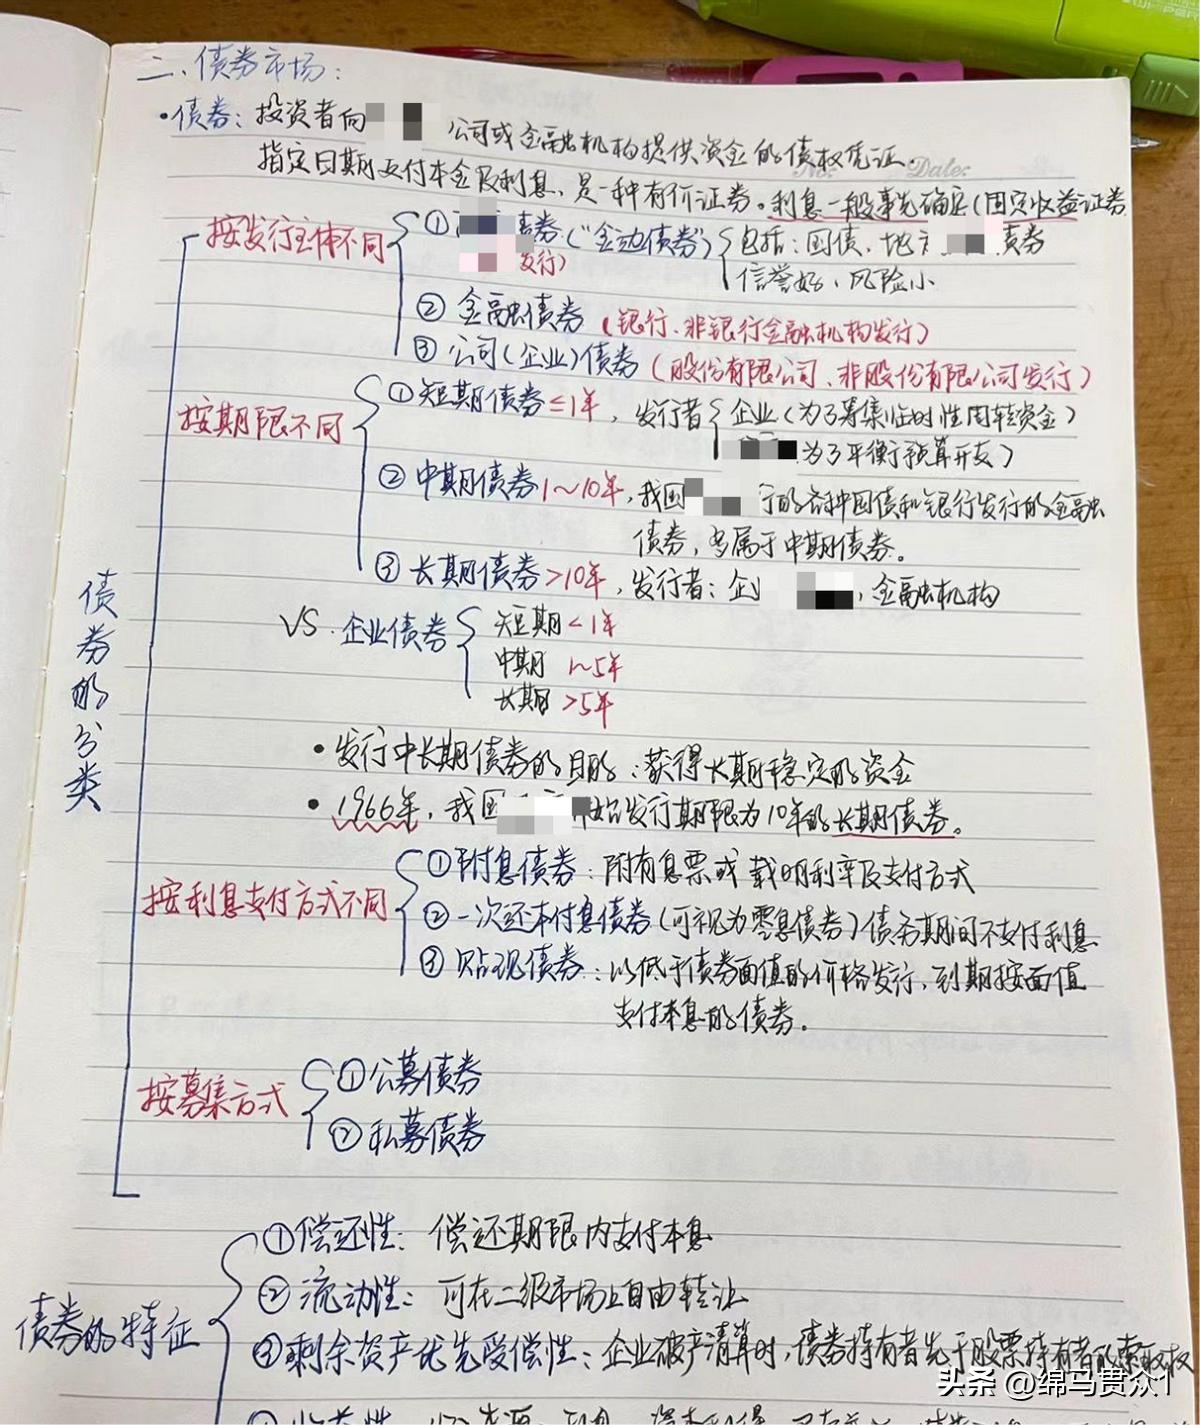 二、债券市场：
·债券：投资者向 公司或金融机构提供资金的债权凭证.
No: Date:
指定日期支付本金及利息，是一种有价证券。利息一般事先确定(固定收益证券
按发行主体不同
① 债券("金边债券") 包括：国债、地方 债券
发行) 信誉好、风险小
② 金融债券 (银行、非银行金融机构发行)
③ 公司(企业)债券 (股份有限公司、非股份有限公司发行)
按期限不同
①短期债券≤1年，发行者 企业(为了筹集临时性周转资金)
为了平衡预算开支)
② 中期债券1~10年，我国 行的各种国债和银行发行的金融
债券，多属于中期债券。
③ 长期债券>10年，发行者：企 ，金融机构
VS. 企业债券 短期<1年
中期 1~5年
长期 >5年
债券的分类
• 发行中长期债券的目的：获得长期稳定的资金
• 1966年，我国 始发行期限为10年的长期债券。
按利息支付方式不同
①附息债券：附有息票或载明利率及支付方式
②一次还本付息债券(可视为零息债券)债务期间不支付利息
③ 贴现债券：以低于债券面值的价格发行，到期按面值
支付本息的债券。
按募集方式
①公募债券
②私募债券
债券的特征
①偿还性：偿还期限内支付本息
② 流动性：可在二级市场上自由转让
③剩余资产优先受偿性：企业破产清算时，债券持有者先于股票持有者 索取权
头条 @绵马贯众1